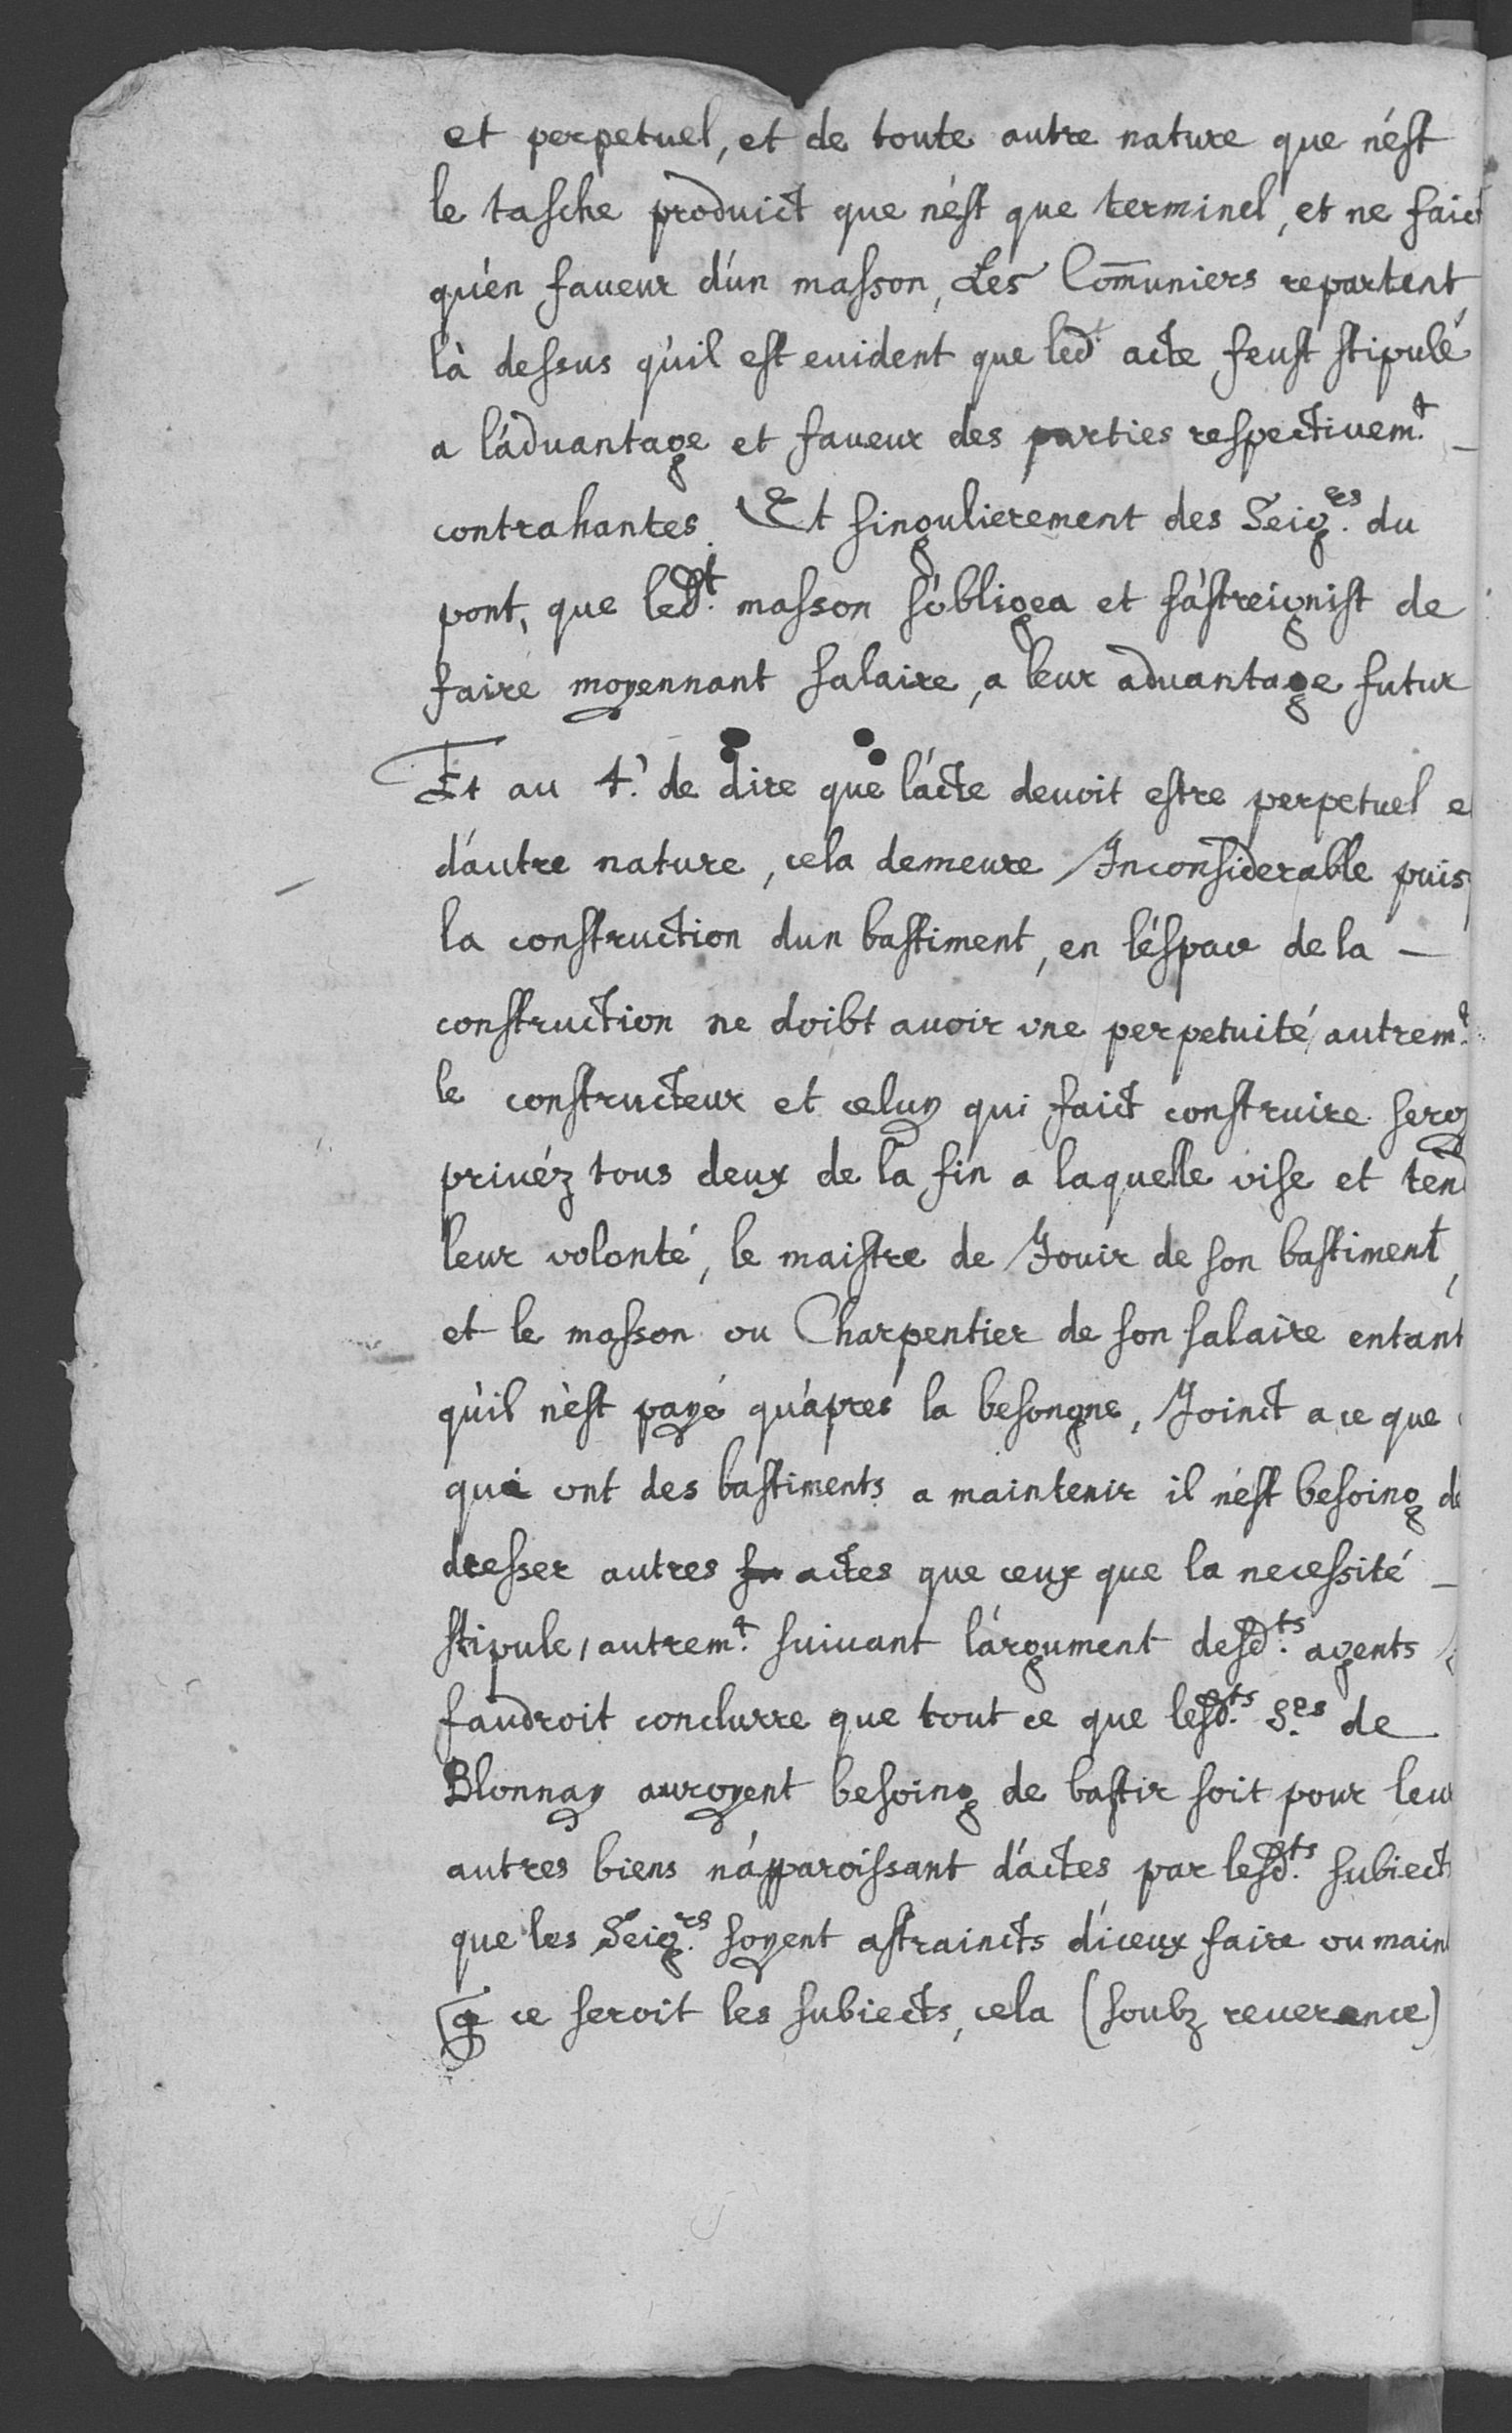 et perpetuel, et de toute autre nature que n'est
le tasche produict que n'est que terminel, et ne faict
qu'en faueur d'un masson, Les Com̄uniers repartent
là dessus qu'il est euident que led.t acte feust stipulé
a l'aduantage et faueur des parties respectiuem.t _
contrahantes. Et singulierement des Seig.rs du
pont, que led.t masson s'obligea et s'astreignist de
faire moyennant salaire, a leur aduantage futur
Et au 4.e de dire que l'acte deuoit estre perpetuel e
d'autre nature, cela demeure Inconsiderable puis
la construction dun bastiment, en l'espace de la —
construction ne doibt auoir vne perpetuité, autrem.t
le constructeur et celuy qui faict construire seroy
priuéz tous deux de la fin a laquelle vise et tend
leur volonté, le maistre de Jouir de son bastiment,
et le masson ou Charpentier de son salaire entant
qu'il n'est payé qu'apres la besongne, Joinct a ce que
qui ont des bastiments a maintenir il n'est besoing de
dresser autres actes que ceux que la necessité _
stipule, autrem.t suiuant l'argument desd.ts agents
faudroit conclurre que tout ce que lesd.ts S.rs de
Blonnay auroyent besoing de bastir soit pour leur
autres biens n'apparoissant d'actes par lesd.ts subiect
que les Seig.rs soyent astraincts d'iceux faire ou main
ce seroit les subiects, cela (soubz reuerence)